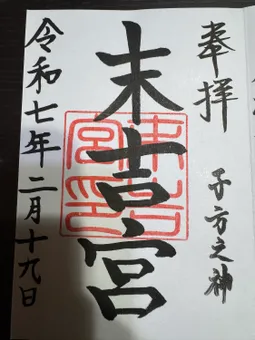 奉拝
子・方之神
末吉宮
末吉宮印
令和七年二月十九日